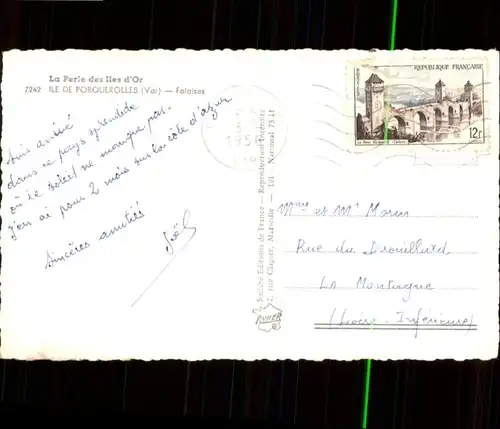 La Perle des Iles d'Or
7242 ILE DE PORQUEROLLES (Var) — Falaises
Suis arrivé
dans ce pays splendide
où le soleil ne manque pas.
J'en ai pour 2 mois sur la côte d'azur
Sincères amitiés
Joël
Société Editions de France — Reproduction Interdite
2, rue Clapier, Marseille — Tél. National 75.11
REPUBLIQUE FRANÇAISE
12F
1956
Mme et Mr Morin
Rue du Drouillard
La Montagne
(Loire-Inférieure)